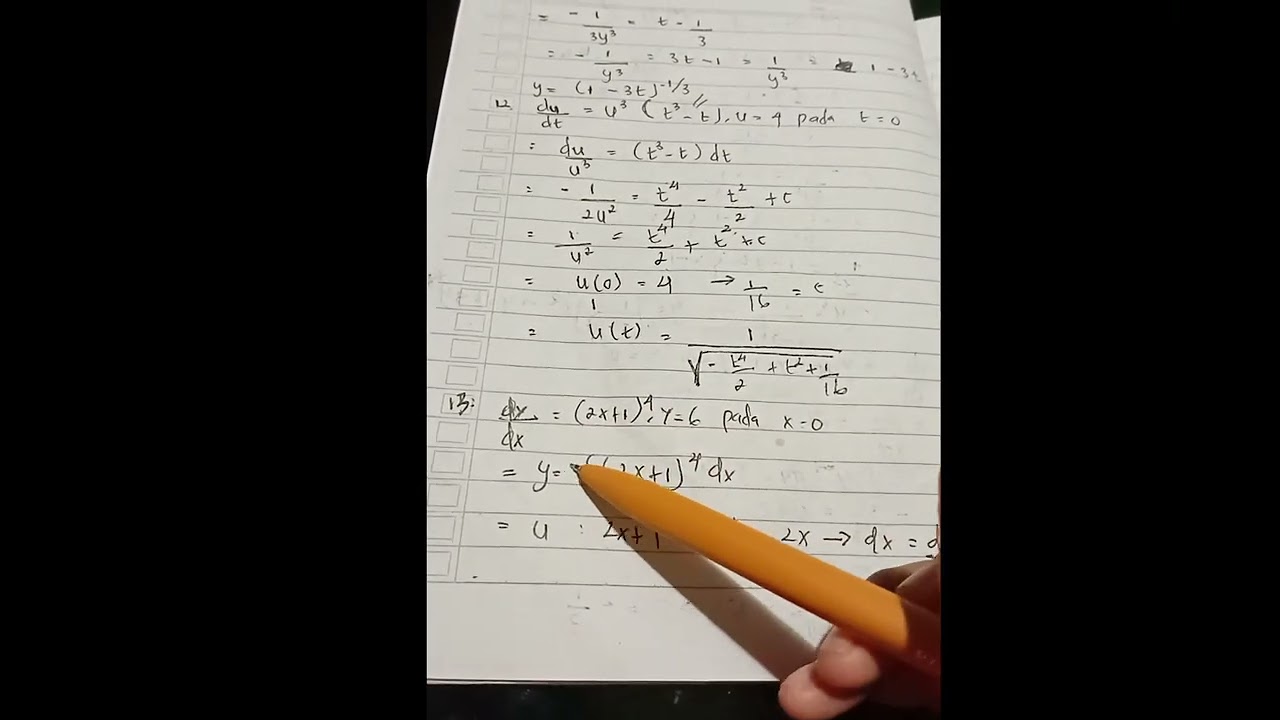 = - 1/3y³ = t - 1/3
= - 1/y³ = 3t - 1 = 1/y³ = 1 - 3t
y = (1 - 3t)^-1/3 //
12. du/dt = u³ (t³ - t), u = 4 pada t = 0
= du/u³ = (t³ - t) dt
= - 1/2u² = t⁴/4 - t²/2 + c
= 1/u² = t⁴/2 + t² + c
= u(0) = 4 → 1/16 = c
= u(t) = 1/√(-t⁴/2 + t² + 1/16)
13. dy/dx = (2x+1)⁴, y = 6 pada x = 0
= y = ∫(2x+1)⁴ dx
= u : 2x+1 2x → dx =